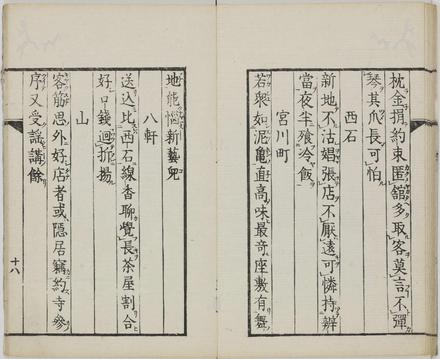 枕金捐約束匿舘多取客莫言不彈
琴其爪長可怕
西石
新地不沽娼張店不厭遠可憐持辨
當夜半飡冷飯
宮川町
若衆如泥亀直高味最竒座敷有舞
地能惱新藝兒
八軒
送込比西石線香聊覺長茶屋割合
好口錢迴折揚
山
客筋思外好店者或隠居竊約寺參
序又受謡講餘
十八